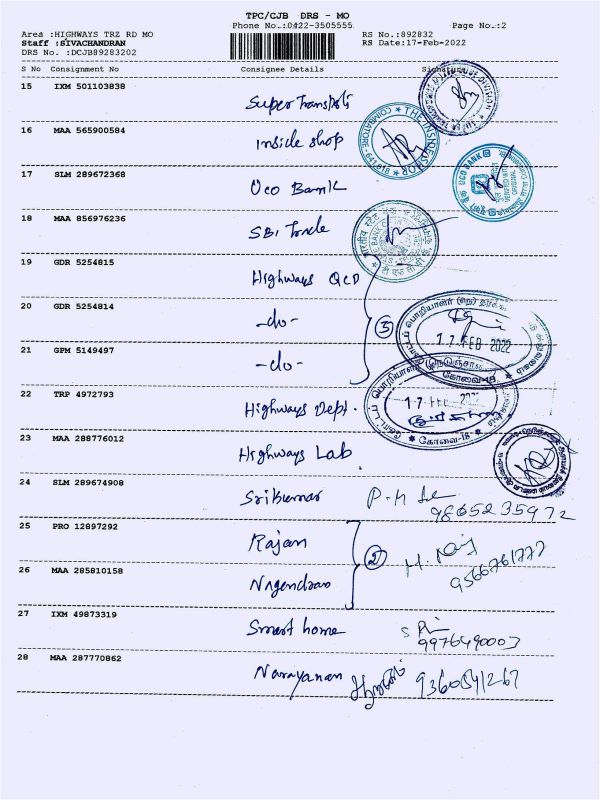 TPC/CJB DRS - MO
Phone No.:0422-3505555 Page No.:2
Area :HIGHWAYS TRZ RD MO RS No.:892832
Staff :SIVACHANDRAN RS Date:17-Feb-2022
DRS No. :DCJB89283202
S No Consignment No Consignee Details Signature
15 IXM 501103838 Super Transports
16 MAA 565900584 Inside shop
THE INSIDE SHOP COIMBATORE - 641 018
17 SLM 289672368 Uco Bank
UCO BANK
18 MAA 856976236 SBI Trade
19 GDR 5254815 Highways QCD
20 GDR 5254814 -do- ③
17 FEB 2022
21 GPM 5149497 -do-
கோவை-18
22 TRP 4972793 Highways Dept.
17 FEB 2022
கோவை-18
23 MAA 288776012 Highways Lab
24 SLM 289674908 Srikumar
9865235972
25 PRO 12897292 Rajan ②
9566761777
26 MAA 285810158 Nagendran
27 IXM 49873319 Smart home
9976490003
28 MAA 287770862 Narayanan 9360541267